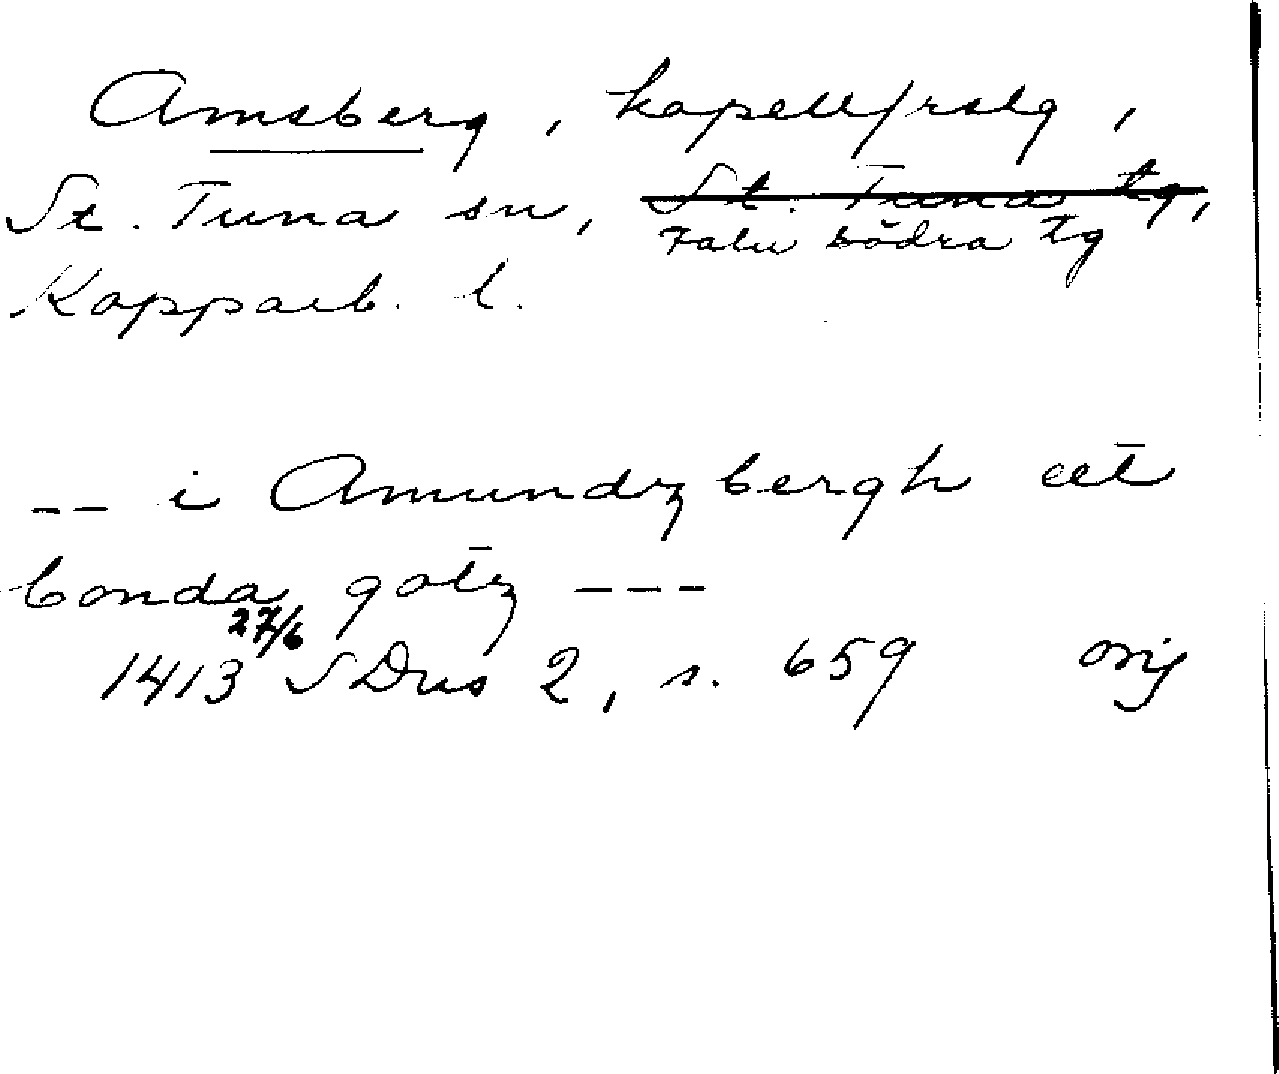 Amsberg, kapellfrslg,
St. Tuna sn, St. Tuna tg,
Falu södra tg
Kopparb. l.
-- i Amundzbergh eet
bonda gotz ---
27/6
1413 SDns 2, s. 659 orig